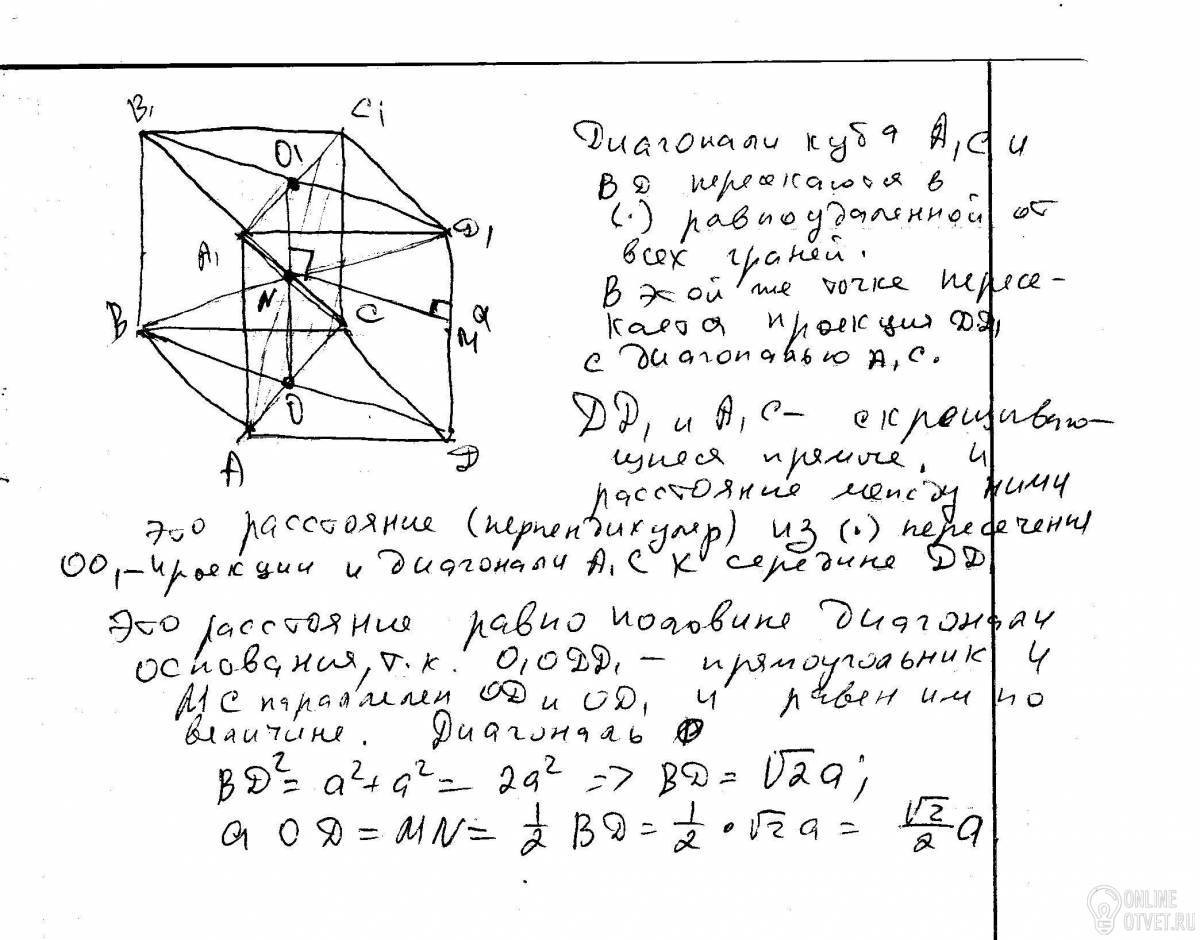 B₁
C₁
O₁
A₁
D₁
N
B
C
M
a
O
A
D
Диагонали куба A₁C и
BD пересекаются в
(·) равноудаленной от
всех граней.
В этой же точке пересе-
кается проекция DD₁
с диагональю A₁C.
DD₁ и A₁C – скрещиваю-
щиеся прямые, и
расстояние между ними
это расстояние (перпендикуляр) из (·) пересечения
OO₁ – проекции и диагонали A₁C к середине DD₁
Это расстояние равно половине диагонали
основания, т.к. O₁ODD₁ – прямоугольник и
MC параллелен OD и OD₁ и равен им по
величине. Диагональ
BD² = a² + a² = 2a² => BD = √2a;
a OD = MN = 1/2 BD = 1/2 · √2 a = √2/2 a
ONLINE
OTVET.RU